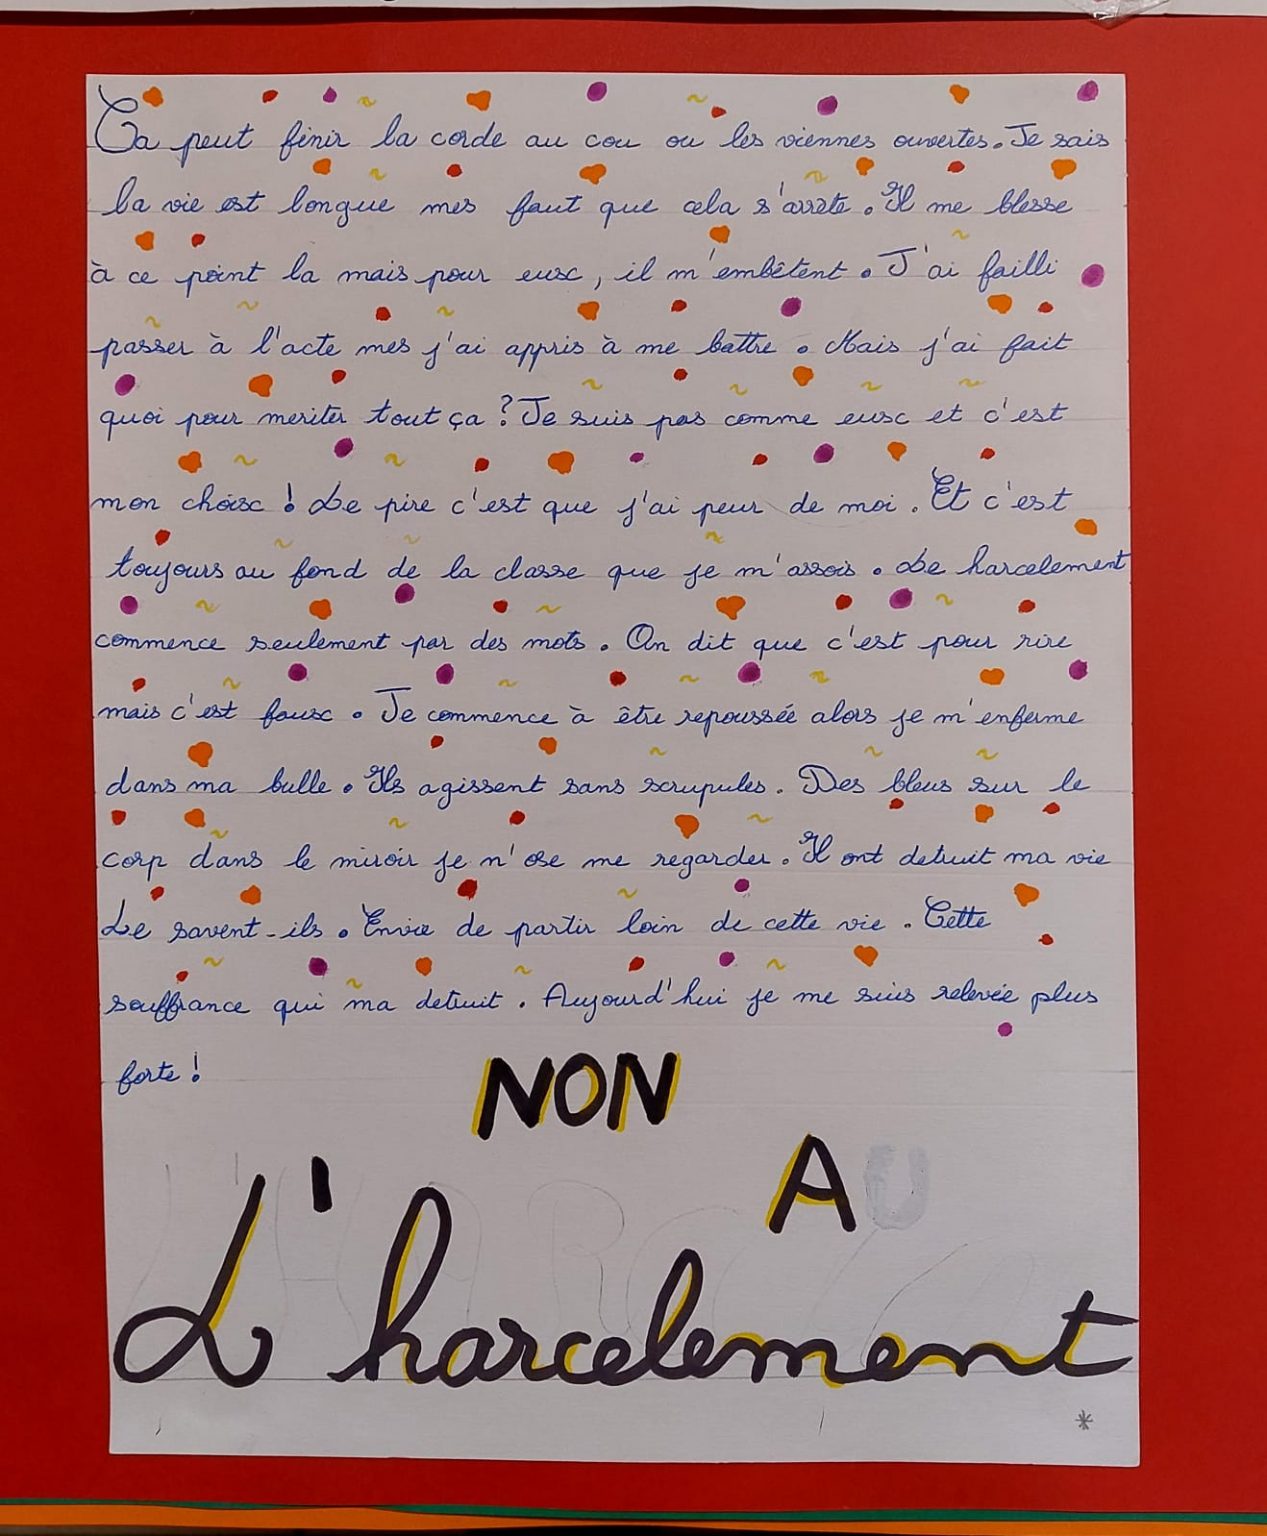 Ca peut finir la corde au cou ou les viennes ouvertes. Je sais
la vie est longue mes faut que cela s'arrète. Il me blesse
à ce point la mais pour eusc, il m'embêtent. J'ai failli
passer à l'acte mes j'ai appris à me battre. Mais j'ai fait
quoi pour meriter tout ça ? Je suis pas comme eusc et c'est
mon choisc ! Le pire c'est que j'ai peur de moi. Et c'est
toujours au fond de la classe que je m'assois. Le harcelement
commence seulement par des mots. On dit que c'est pour rire
mais c'est fausc. Je commence à être repoussée alors je m'enferme
dans ma bulle. Ils agissent sans scrupules. Des bleus sur le
corp dans le miroir je n'ose me regarder. Il ont detruit ma vie
Le savent-ils. Envie de partir loin de cette vie. Cette
souffrance qui ma detruit. Aujourd'hui je me suis relevée plus
forte !
NON
A
L'harcelement
*